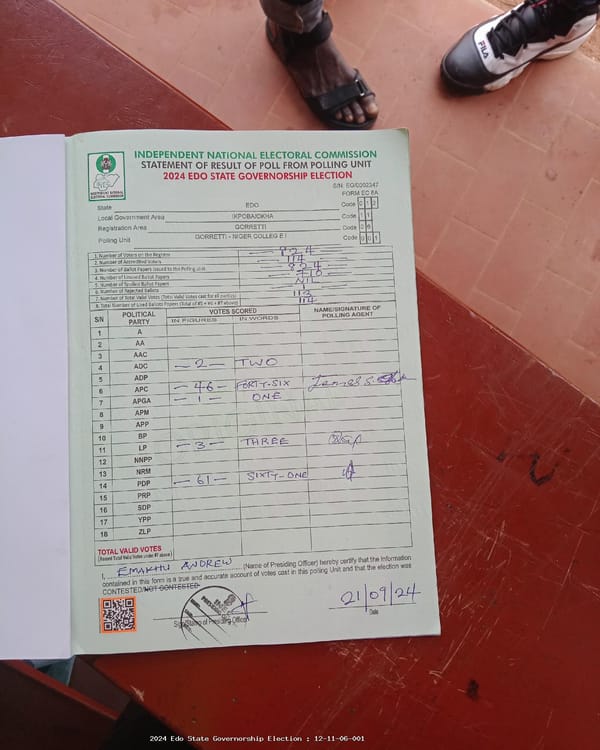 INDEPENDENT NATIONAL ELECTORAL COMMISSION
STATEMENT OF RESULT OF POLL FROM POLLING UNIT
2024 EDO STATE GOVERNORSHIP ELECTION
FORM EC 8A
State EDO Code 0 1 2
Local Government Area IKPOBA/OKHA Code 1 1
Registration Area GORRETTI Code 0 6
Polling Unit GORRETTI - NIGER COLLEGE I Code 0 0 1
1. Number of Voters on the Register 824
2. Number of Accredited Voters 114
3. Number of Ballot Papers Issued to the Polling unit 824
4. Number of Unused Ballot Papers 710
5. Number of Spoiled Ballot Papers NIL
6. Number of Rejected Ballots
7. Number of Total Valid Votes (Total Valid Votes cast for all parties) 113
8. Total Number of Used Ballots Papers (Total of #5 + #6 + #7 above) 114
SN POLITICAL PARTY VOTES SCORED NAME/SIGNATURE OF POLLING AGENT
IN FIGURES IN WORDS
1 A
2 AA
3 AAC
4 ADC - 2 - TWO
5 ADP
6 APC - 46 - FORTY-SIX
7 APGA - 1 - ONE
8 APM
9 APP
10 BP
11 LP - 3 - THREE
12 NNPP
13 NRM
14 PDP - 61 - SIXTY-ONE
15 PRP
16 SDP
17 YPP
18 ZLP
TOTAL VALID VOTES
I, EMAKHU ANDREW (Name of Presiding Officer) hereby certify that the Information
contained in this form is a true and accurate account of votes cast in this polling Unit and that the election was
CONTESTED/NOT CONTESTED.
21/09/24
Date
FILA
2024 Edo State Governorship Election : 12-11-06-001